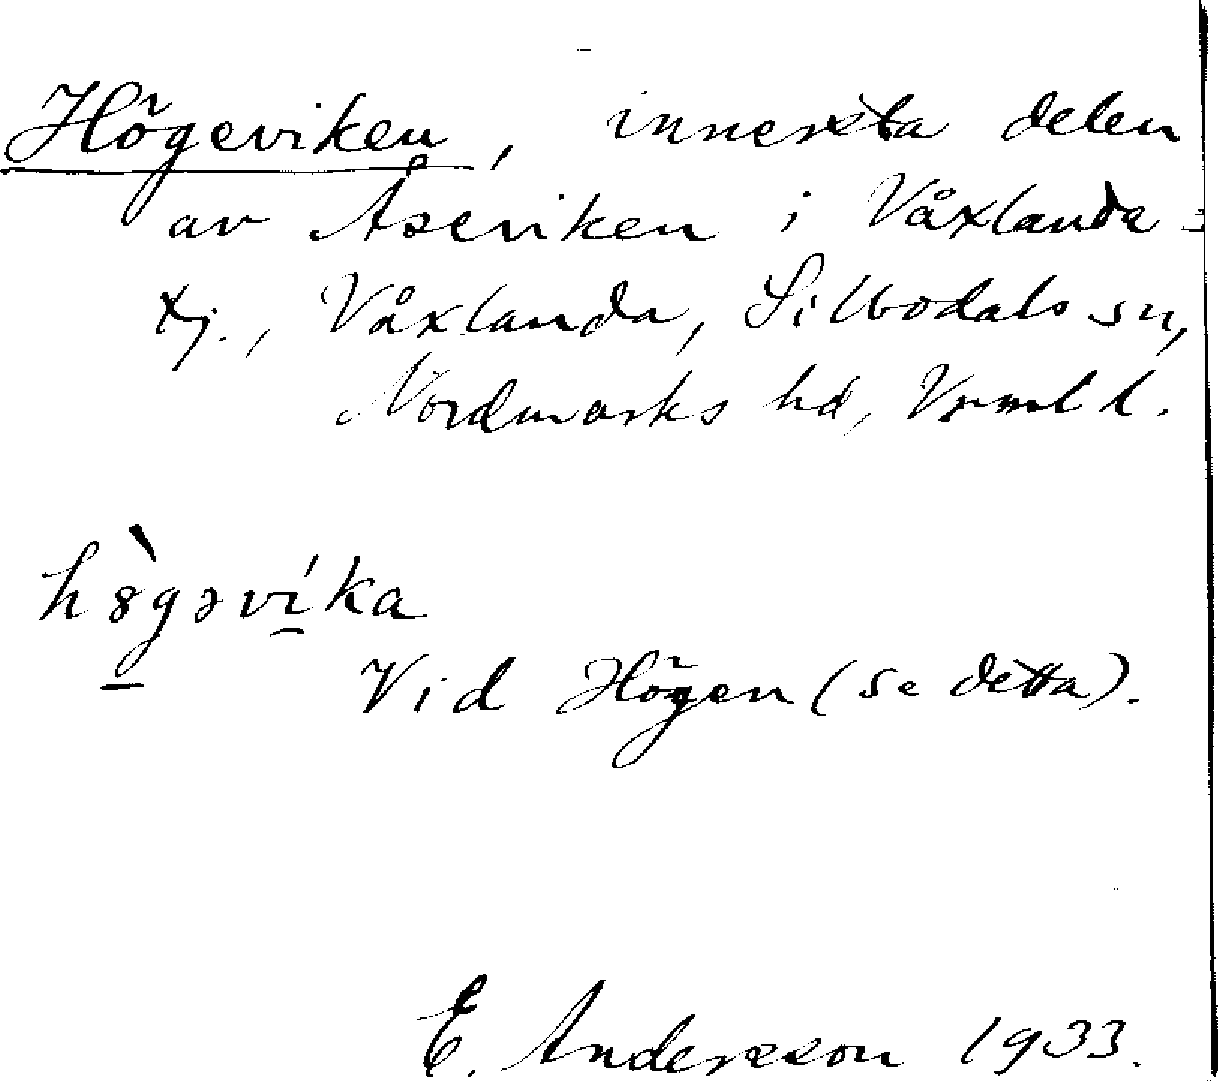 Högeviken, innersta delen
av Åseviken i Våxlanda-
tj., Våxlanda, Silbodals sn,
Nordmarks hd, Vrml l.
högəvíka
Vid Högen (se detta).
E. Andersson 1933.